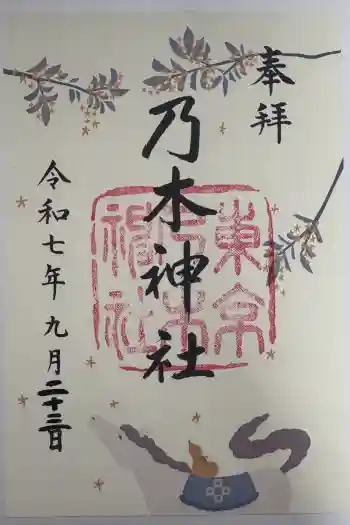 奉拝
乃木神社
東京乃木神社
令和七年九月二十三日